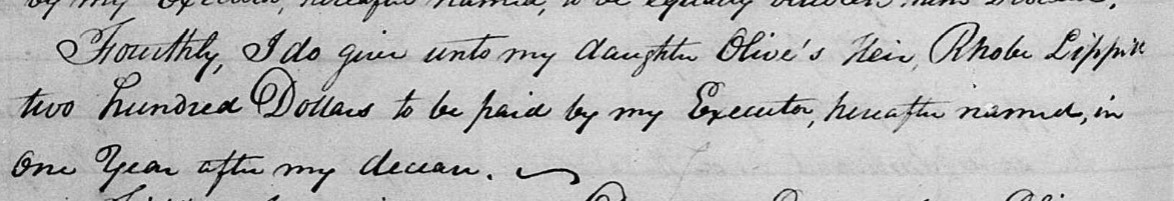 by my Executor, hereafter named, to be equally
Fourthly, I do give unto my daughter Olive's Heir, Rhobe Lippitt
two hundred Dollars to be paid by my Executor, hereafter named, in
One Year after my decease.